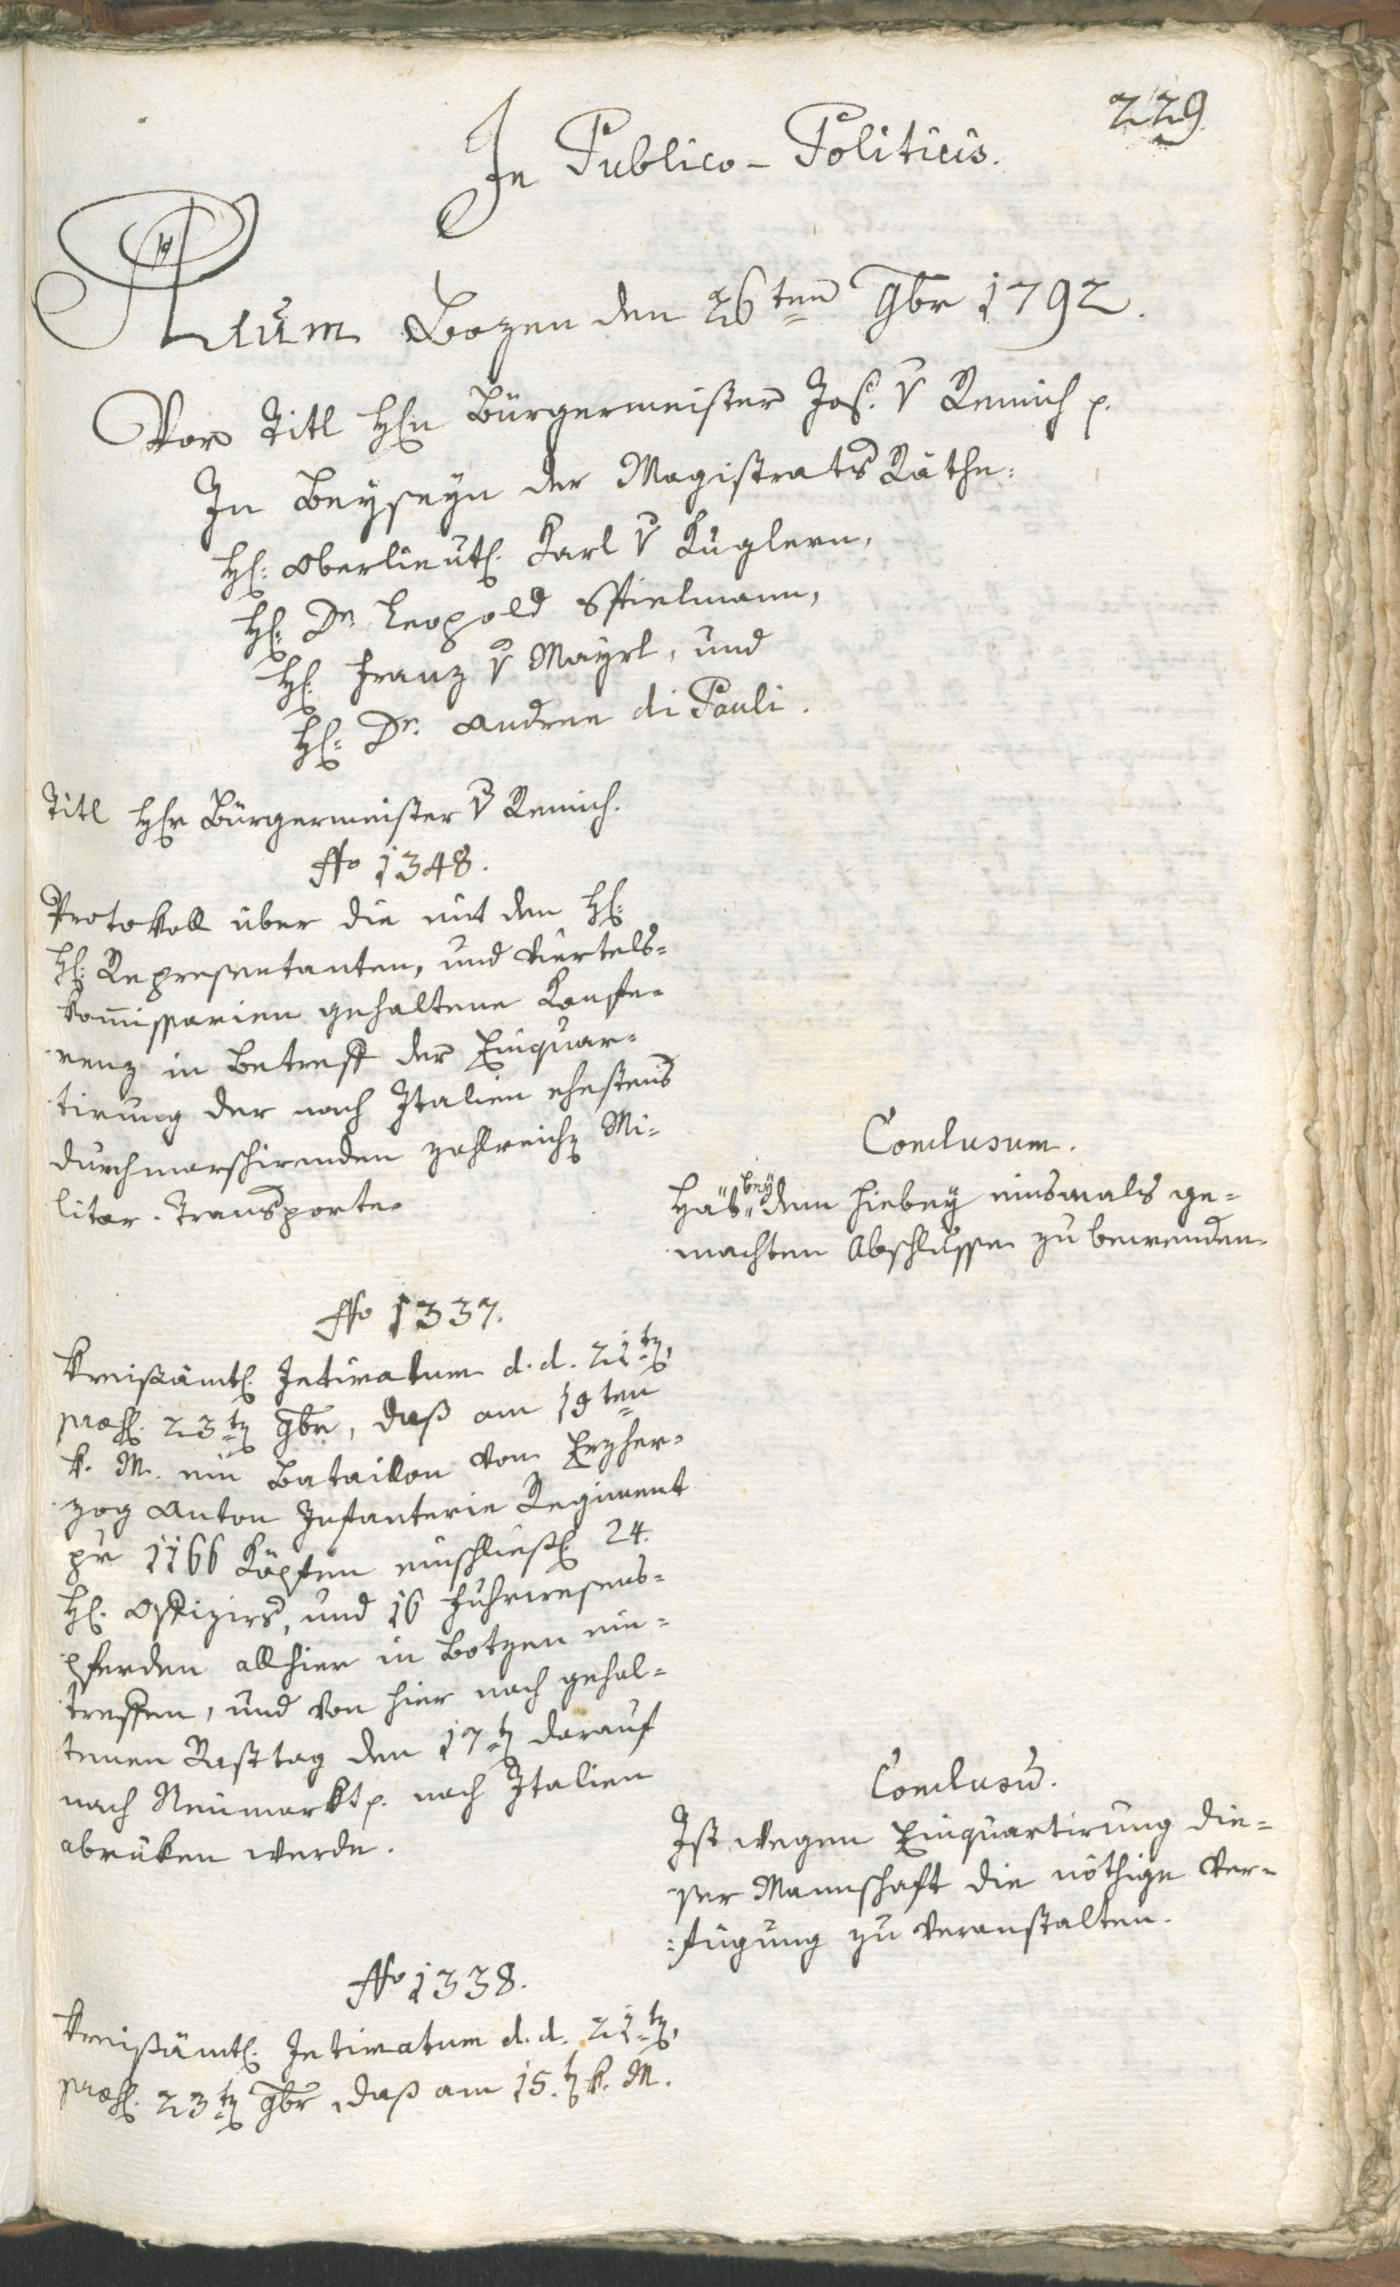 229
In Publico-Politicis.
Actum Bozen den 26ten 9br 1792.
Vor Titl Hℓn Bürgermeister Jos. v Remich p.
In Beyseyn der Magistrats Räthe:
Hℓ: Oberlieutℓ. Karl v Kuglern,
Hℓ: Dr Leopold Spielmann,
Hℓ: Franz v Mayrl, und
Hℓ: Dr. Andree di Pauli.
Titl Hℓr Bürgermeister v Remich.
Nro 1348.
Protokoll über die mit den Hℓ:
Hℓ: Representanten, und Viertels-
kom̅issarien gehaltene Konfe-
renz in Betreff der Einquar-
tirung der nach Italien ehestens
durchmarschirenden zahlreichen Mi-
litar-Transporte.
Conclusum.
Häts bey dem hiebey einsmals ge-
machten Abschlusse zu bewenden.
Nro 1337.
Kreisämtl. Intimatum d. d. 21ten,
præs. 23ten 9br, daß am 15ten
k. M. ein Bataillon vom Erzher-
zog Anton Infanterie Regiment
pr 1166 Köpfen einschließl. 24.
Hℓ. Offizirs, und 16 Fuhrwesens-
pferden allhier in Botzen ein-
treffen, und von hier nach gehal-
tenen Rasttag den 17ten darauf
nach Neumarkt p. nach Italien
abrüken werde.
Conclusu̅.
Ist wegen Einquartirung die-
ser Mannschaft die nöthige Ver-
fügung zu veranstalten.
Nro 1338.
Kreisämtl. Intimatum d. d. 21ten,
præs. 23ten 9br, daß am 15.ten k. M.